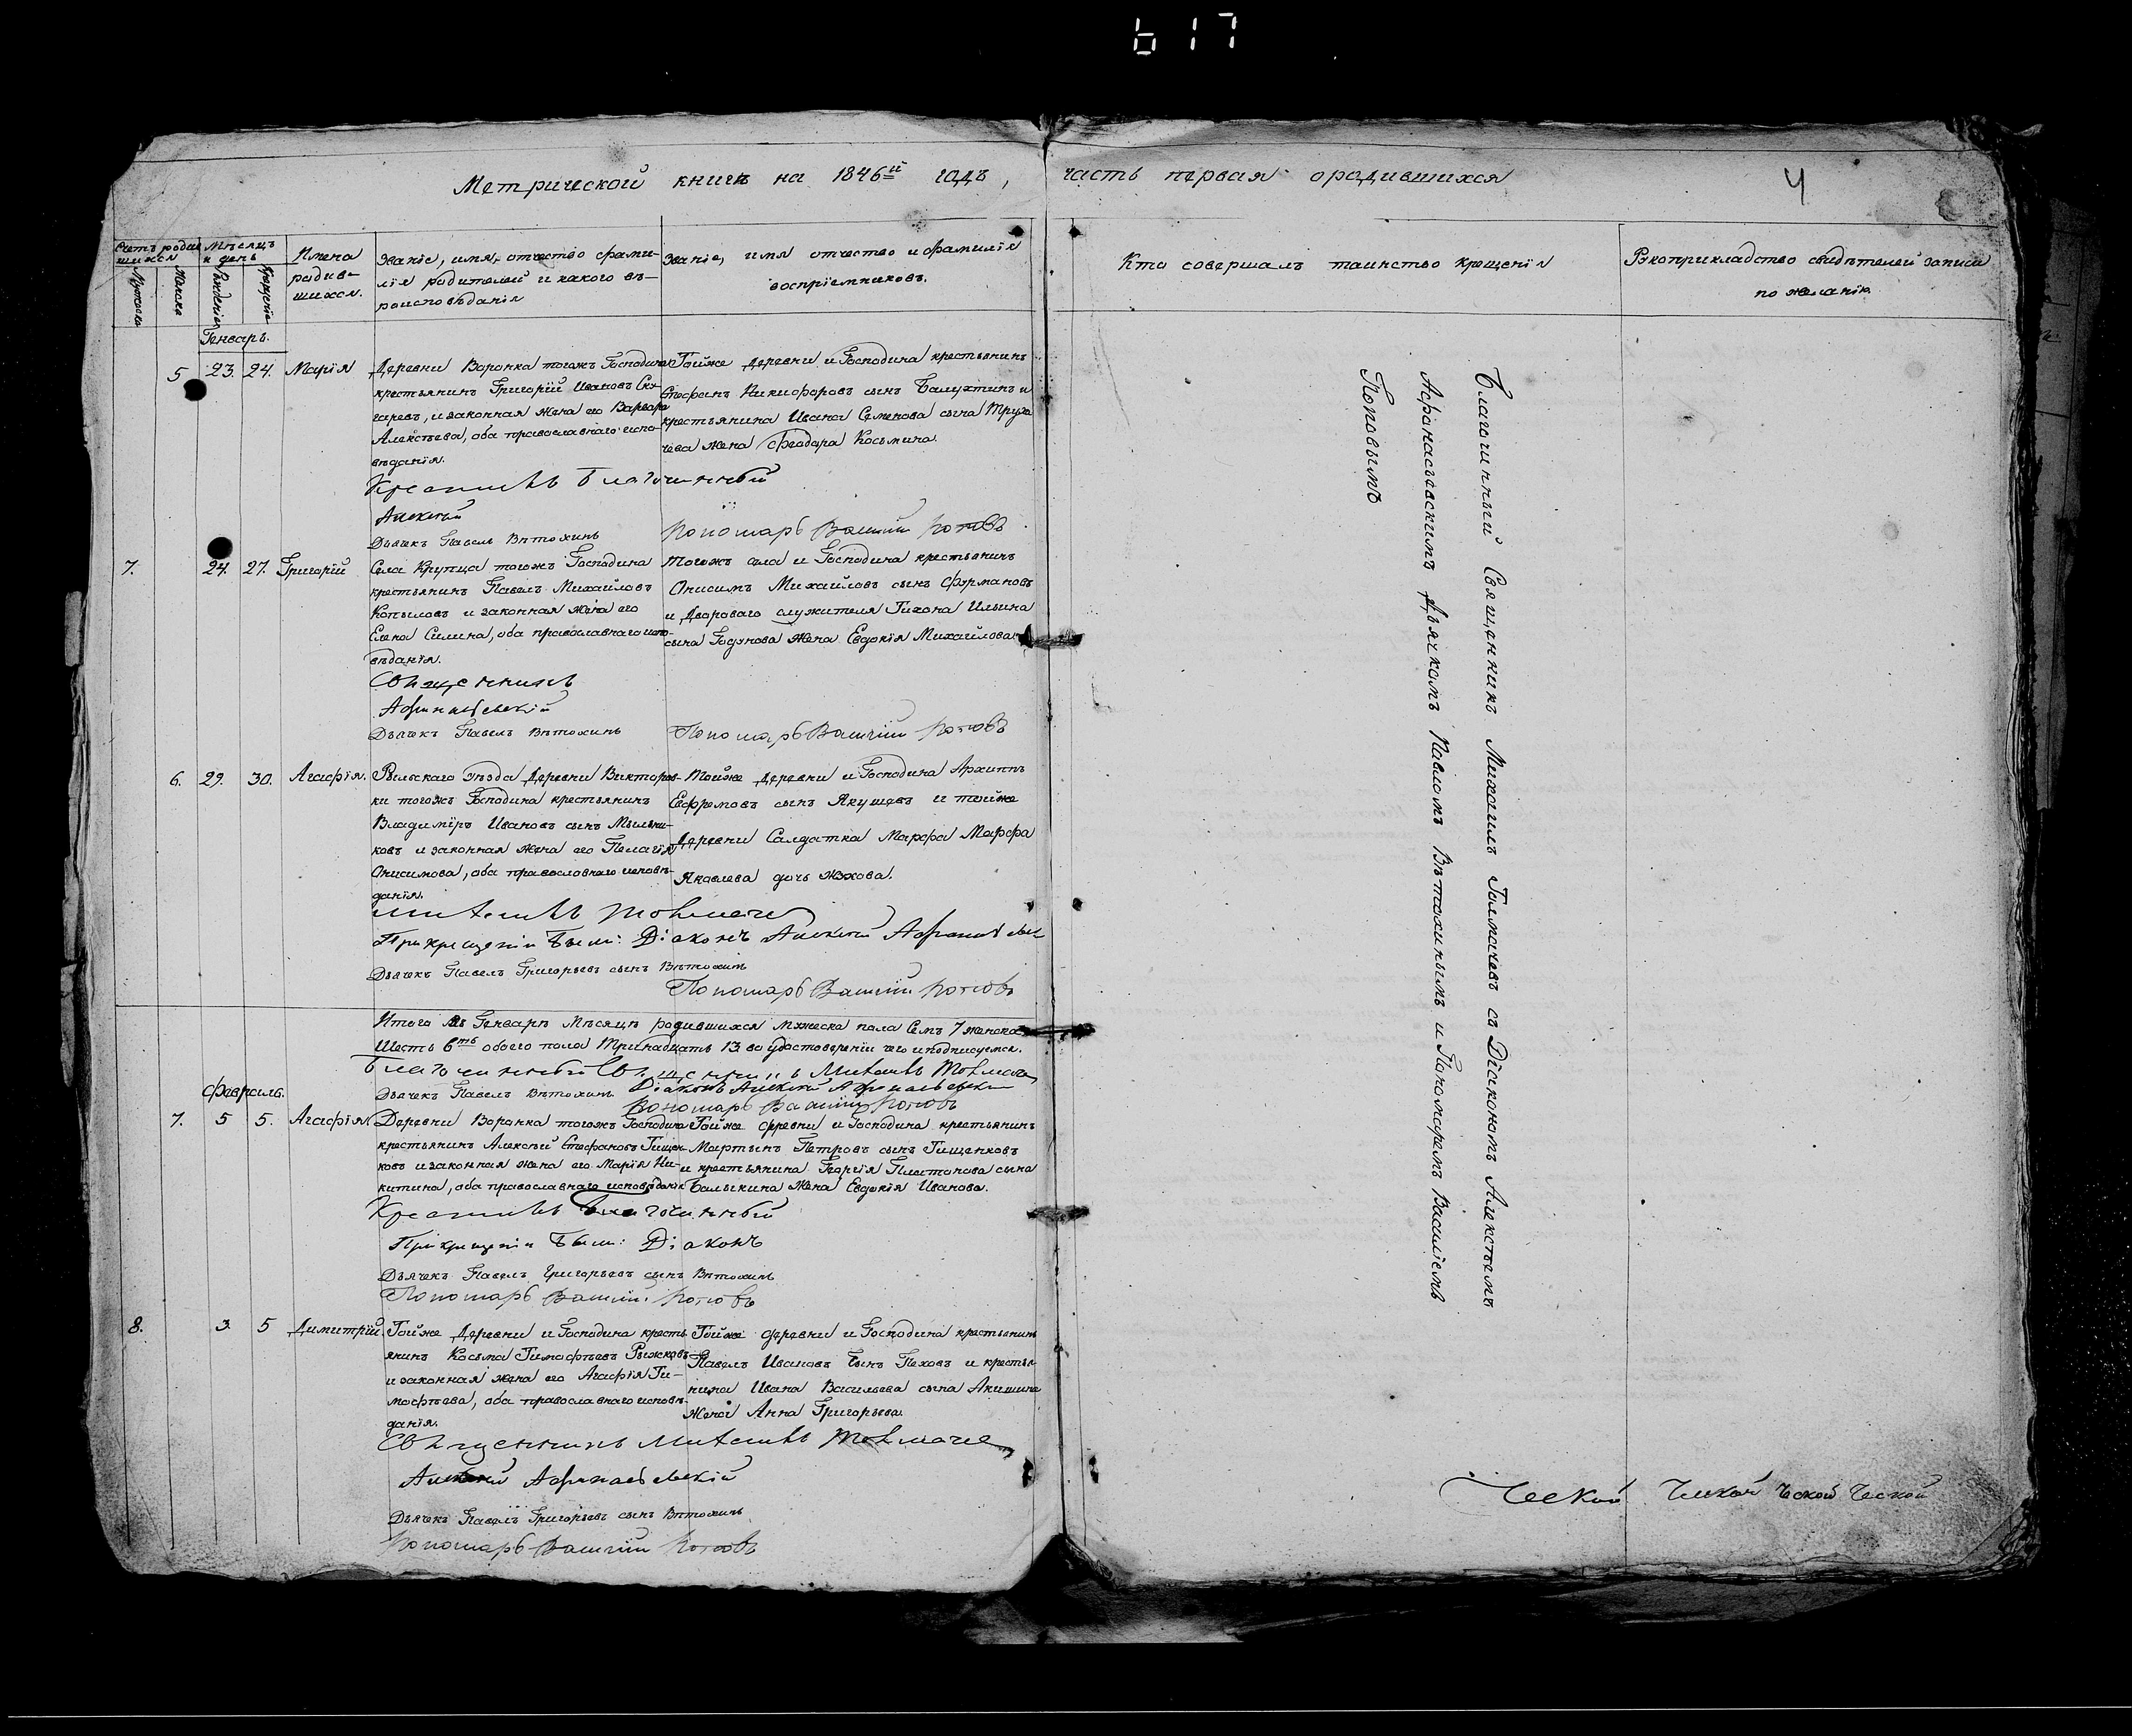 617
Метрической книги на 1846й годъ, часть первая о родившихся
4
Счетъ родившихся
Мѣсяцъ и день
Имена родив-
шихся.
Званіе, имя, отчество фами-
лія родителей и какого вѣ-
роисповѣданія
Званіе, имя отчество и фамилія
воспріемниковъ.
Кто совершалъ таинство крещенія
Рукоприкладство свидѣтелей записи
по желанію
Мужеска
Женска
Рожденіе
Крещеніе
Генварь.
5 23. 24. Марія
Деревни Воронка тогожъ Господина
крестьянинъ Григорій Ивановъ
и законная жена его Варвара
Алексѣева, оба православнаго испо-
вѣданія.
Тойже деревни и Господина крестьянинъ
Стефанъ Никифоровъ сынъ Балухтинъ и
крестьянина Ивана Семенова сына Труха
чева жена Феодора Косьмина.
Крестилъ Благочинный
Алексѣй
Дьячекъ Павелъ Вѣтохинъ
Пономарь Василій Поповъ
7. 24. 27. Григорій
Села Крупца тогожъ Господина
крестьянинъ Павелъ Михайловъ
Копыловъ и законная жена его
Елена Силина, оба православнаго испо-
вѣданія.
Тогожъ села и Господина крестьянинъ
Онисимъ Михайловъ сынъ Фурмановъ
и Двороваго служителя Тихона Ильина
сына Годунова жена Евдокія Михайлова
Священникъ
Афанасьевскій
Дьячекъ Павелъ Вѣтохинъ
Пономарь Василій Поповъ
6. 29. 30. Агафія.
Рыльскаго уѣзда Деревни Викторов-
ки тогожъ Господина крестьянинъ
Владиміръ Ивановъ сынъ Мыльни-
ковъ и законная жена его Пелагія
Онисимова, оба православнаго исповѣ-
данія.
Тойже деревни и Господина Архиппъ
Евфремовъ сынъ Якушевъ и тойже
Деревни Салдатка Марфа Марфа
Яковлева дочь Жукова.
Михаилъ Толмачев
При крещеніи были: Діаконъ Алексѣй Афанасьев
Дьячекъ Павелъ Григорьевъ сынъ Вѣтохинъ
Пономарь Василій Поповъ
Итого въ Генварѣ мѣсяцѣ родившихся мужеска пола Семь 7 женска
Шесть 6ть обоего пола Тринадцать 13. во удостовереніи чего и подписуемся.
Благочинный Священникъ Михаилъ Толмачев
Діаконъ Алексѣй Афанасьевскій
Дьячекъ Павелъ Вѣтохинъ
Пономарь Василій Поповъ
Февраль.
7. 5 5. Агафія
Деревни Воронка тогожъ Господина
крестьянинъ Алексѣй Стефановъ Тищен-
ковъ и законная жена его Марія Ни-
китина, оба православнаго исповѣданія
Тойже деревни и Господина крестьянинъ
Мартынъ Петровъ сынъ Тищенковъ
и крестьянина Георгія Платонова сына
Балыкина жена Евдокія Иванова.
Крестилъ Благочинный
При крещеніи были: Діаконъ
Дьячекъ Павелъ Григорьевъ сынъ Вѣтохинъ
Пономарь Василій Поповъ
8. 3. 5 Димитрій.
Тойже Деревни и Господина кресть-
янинъ Косьма Тимофѣевъ Рыжковъ
и законная жена его Агафія Ти-
мофѣева, оба православнаго исповѣ-
данія.
Тойже деревни и Господина крестьянинъ
Павелъ Ивановъ сынъ Пеховъ и крестья-
нина Ивана Васильева сына Акишина
Жена Анна Григорьева.
Священникъ Михаилъ Толмачев
Алексѣй Афанасьевскій
Дьячекъ Павелъ Григорьевъ сынъ Вѣтохинъ
Пономарь Василій Поповъ
Благочинный Священникъ Михаилъ Толмачевъ съ Діакономъ Алексѣемъ
Афанасьевскимъ Дьячкомъ Павломъ Вѣтохинымъ и Пономаремъ Василіемъ
Поповымъ
Ческой Ческой Ческой